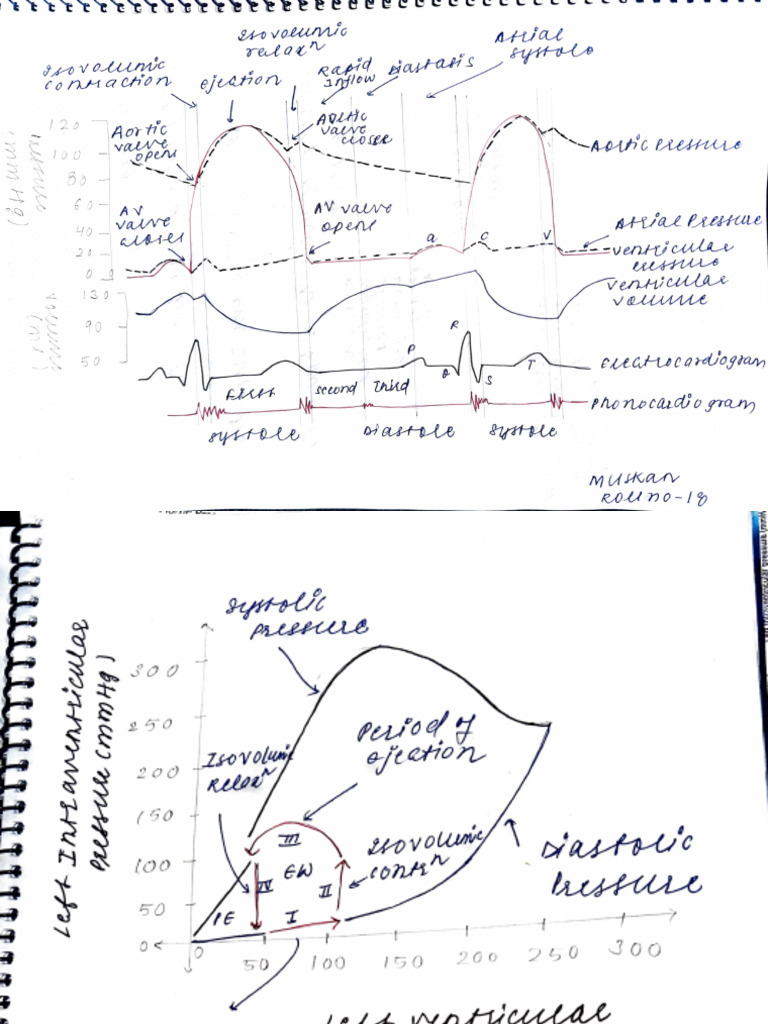 Isovolumic
relaxn
Atrial
systole
Isovolumic
contraction
ejection
Rapid
Inflow
Diastasis
120
100
80
60
40
20
0
Aortic
valve
opens
Aortic
valve
closes
Aortic Pressure
AV
valve
closes
AV valve
opens
a
c
v
Atrial Pressure
ventricular
pressure
ventricular
volume
130
90
50
R
P
Q
S
T
Electrocardiogram
First
second
Third
Phonocardiogram
systole
Diastole
systole
MUSKAN
Roll no - 18
Left Intraventricular
Pressure (mmHg)
systolic
pressure
300
250
200
150
100
50
0
Isovolumic
Relaxn
Period of
ejection
III
EW
IV
II
Isovolumic
contrn
PE
I
Diastolic
Pressure
0
50
100
150
200
250
300
Left ventricular